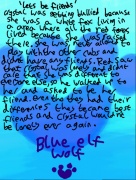 lets be friends
crystal was getting bullied because
she was a white fox living in
a area where all the red foxes
lived because she was raised
there. She was never allowed to
play with the other cubs and
didn't have any friends. Red saw
that crystal was lonely and didn't
care that she was different to
everyone else, so he walked up to
her and asked to be her
friend. Even tho they had their
differences, they became best
friends and Crystal would never
be lonely ever again.
Blue elf
wolf